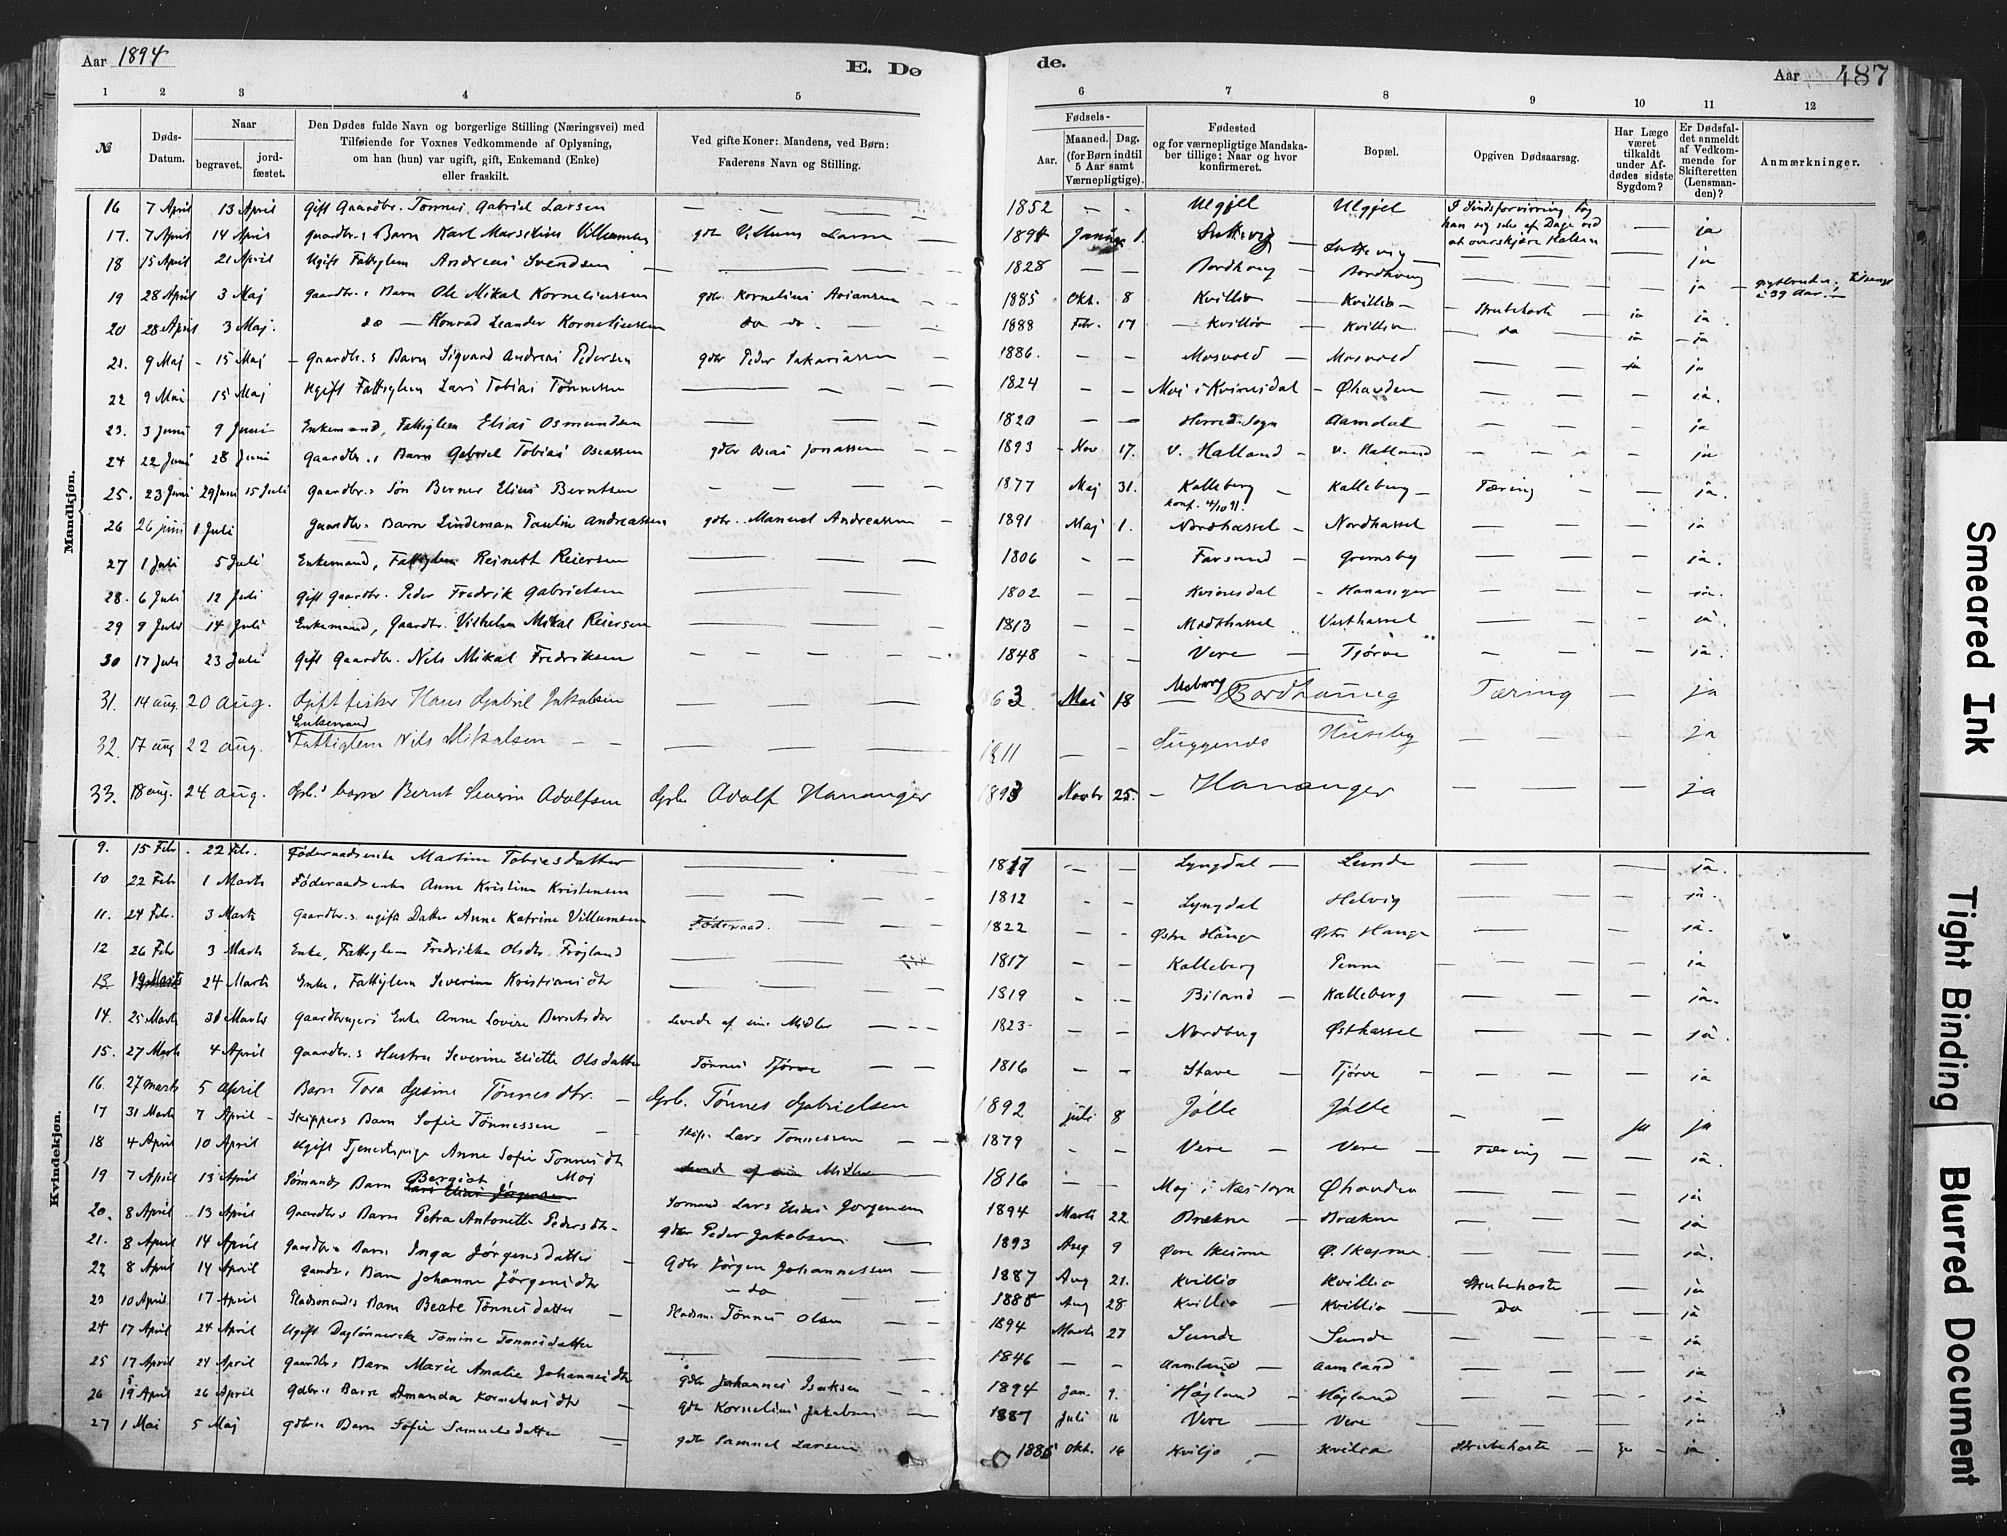 Aar 1894
E. Dø
de.
Aar 487
1 2 3 4 5 6 7 8 9 10 11 12
№
Døds-
Datum.
Naar
begravet.
jord-
fæstet.
Den Dødes fulde Navn og borgerlige Stilling (Næringsvei) med
Tilføiende for Voxnes Vedkommende af Oplysning,
om han (hun) var ugift, gift, Enkemand (Enke)
eller fraskilt.
Ved gifte Koner: Mandens, ved Børn:
Faderens Navn og Stilling.
Fødsels-
Aar.
Maaned. Dag.
(for Børn indtil
5 Aar samt
Værnepligtige).
Fødested
og for værnepligtige Mandska-
ber tillige: Naar og hvor
konfirmeret.
Bopæl.
Opgiven Dødsaarsag.
Har Læge
været
tilkaldt
under Af-
dødes sidste
Sygdom?
Er Dødsfal-
det anmeldt
af Vedkom-
mende for
Skifteretten
(Lensman-
den)?
Anmærkninger.
Mandkjøn.
16 7 April 13 April Gift Gaardbr. Tønnes Gabriel Larsen — — 1852 — — Ulgjel Ulgjel I Sindsforvirring tog han sig selv af Dage ved at overskjære Halsen — ja
17. 7 April 14 April Gaardbr.s Barn Karl Marselius Villumsen gdbr Villum Larsen 1894 Januar 1. Lutte vig — Luttevig — ja
18 15 April 21 April Ugift Fattiglem Andreas Svendsen — 1828 — — Bordhoug — Bordhoug — ja
19 28 April 3 Maj Gaardbr.s Barn Ole Mikal Korneliussen gdbr Kornelius Ariansen 1885 Okt. 8 Kvillio — Kvillio — Strubehoste ja ja
20 28 April 3 Maj. do — Konrad Leander Korneliussen do do 1888 Febr. 17 — Kvillio — Kvillio do ja ja
21. 9 Maj 15 Maj Gaardbr.s Barn Sigvard Andreas Pedersen gdbr Peder Sakariassen 1886. — — Mosvold — Mosvold — ja ja
22 9 Mai 15 Maj Ugift Fattiglem Lars Tobias Tønnessen — 1824 — — Moi i Kvinesdal — Øhavden — ja.
23. 3 Juni 9 Juni Enkemand, Fattiglem Elias Osmundsen — 1820 — — Herred Sogn Aamdal — ja
24 22 Juni 28 Juni Gaardbr.s Barn Gabriel Tobias Oseassen gdbr Oseas Jonassen 1893 Nov 17. V. Hatland — V. Hatland — ja
25. 23 Juni 29 Juni 15 Juli Gaardbr.s Søn Berner Elias Berntsen — 1877 Maj 31. Kalleberg — Kalleberg — Tæring — ja.
konf. 4/10 91.
26 26 juni 1 Juli Gaardbr.s Barn Lindeman Paulin Andreassen gdbr. Manuel Andreassen 1891 Maj 1. Nordhassel — Nordhassel — ja
27 1 Juli 5 Juli Enkemand, Fattiglem Reinett Reiersen — 1806 — — Farsund — Grumsby — ja.
28. 6 Juli 12 Juli Gift Gaardbr. Peder Fredrik Gabrielsen — 1802 — — Kvinesdal — Hananger — ja.
29 9 Juli 14 Juli Enkemand, Gaardbr. Vilhelm Mikal Reiersen — 1813 — — Midthassel Vesthassel — ja.
30 17 Juli 23 Juli Gift Gaardbr. Nils Mikal Fredriksen — 1848 — — Vere — Tjörve — ja.
31. 14 aug. 20 aug. Gift fisker Hans Gabriel Jakobsen — 1863 Mai 18 — Bordhaung Tæring — ja
Enkemand
32. 17 aug 22 aug. Fattiglem Nils Mikalsen — 1811 — Guggends Huseby — ja
33. 18 aug. 24 aug. Gbr.s barn Bernt Severin Adolfsen Gbr Adolf Hananger 1893 Novbr 25. — Hananger — ja
Kvindekjøn.
9. 15 Febr. 22 Febr. Föderaadsenke Martine Tobiasdatter — 1817 — — Lyngdal — Lunde — ja.
10 22 Febr 1 Marts Föderaadsenke Anne Kristine Kristensen — 1812 — — Lyngdal Helvig — ja.
11. 24 Febr. 3 Marts Gaardbr.s ugifte Datter Anne Katrine Villumsen Föderaad. 1822 — — Østre Hauge Østre Hauge — ja.
12 26 Febr 3 Marts Enke, Fattiglem Fredrikke Olsdtr. Fröjland — 1817 — — Kalleberg Penne — ja
13 19 Marts 24 Marts Enke, Fattiglem Severine Kristiansdtr — 1819 — — Biland — Kalleberg — ja.
14. 25 Marts 31 Marts Gaardbrugers Enke Anne Lovise Berntsdtr Levede af sine Midler 1823 — — Nordbug Østhassel — ja.
15. 27 Marts 4 April Gaardbr.s Hustru Severine Eliette Olsdatter Tönnes Tjörve 1816 — — Stave — Tjörve — ja
16. 27 marts 5 april Barn Tora Gjesine Tönnesdtr. — Gbr. Tönnes Gabrielsen 1892 juli 8 Jölle Jölle — ja ja
17 31 Marts 7 April Skippers Barn Sofie Tönnessen Skip. Lars Tönnessen 1879 — — Vere — Vere — Tæring — ja.
18 4 April 10 April Ugift Tjenestepige Anne Sofie Tönnesdtr Moj Levede af sine Midler 1816 — — Moj i Næs Sogn Øhavden — ja
19 7 April 13 April Sömands Barn Bergiot Lars Elias Jørgensen Sömand Lars Elias Jørgensen 1894 Marts 22 Brækne — Brækne — ja
20. 8 April 13 April Gaardbr.s Barn Petra Antonette Pedersdtr. gdbr Peder Jakobsen 1893 Aug 9 Øvre Skeime Ø. Skejme — ja.
21. 8 April 14 April Gaardbr.s Barn Inga Jørgensdatter gdbr Jørgen Johannessen 1887 Aug 21. Kvillio Kvillio Strubehoste ja
22 8 April 14 April Gaardbr.s Barn Johanne Jørgensdtr — do 1885 Aug 28 — Kvillio — Kvillio — Do — ja
23 10 April 17 April Pladsmands Barn Beate Tönnesdatter Pladsm. Tönnes Olsen 1894 Marts 27 Sunde Sunde — ja
24 17 April 24 April Ugift Daglønnerske Tomine Tonnesdatter — 1846 — — Aamland — Aamland — ja
25 17 April 24 April Gaardbr.s Barn Marie Amalie Johannesdtr gdbr Johannes Isaksen 1894 Jan. 9. Højland — Højland — ja
26 19 April 26 April Gdbr.s Barn Amanda Kornelsdtr gdbr Kornelius Jakobsen 1887 Juli 16 Vere — Vere — ja
27 1 Mai 5 Maj gdbrs Barn Sofie Samuelsdatter gdbr Samuel Larsen 1885 Okt. 16 Kviljo — Kviljo Strubehoste — ja — ja
Smeared Ink
Tight Binding
Blurred Document